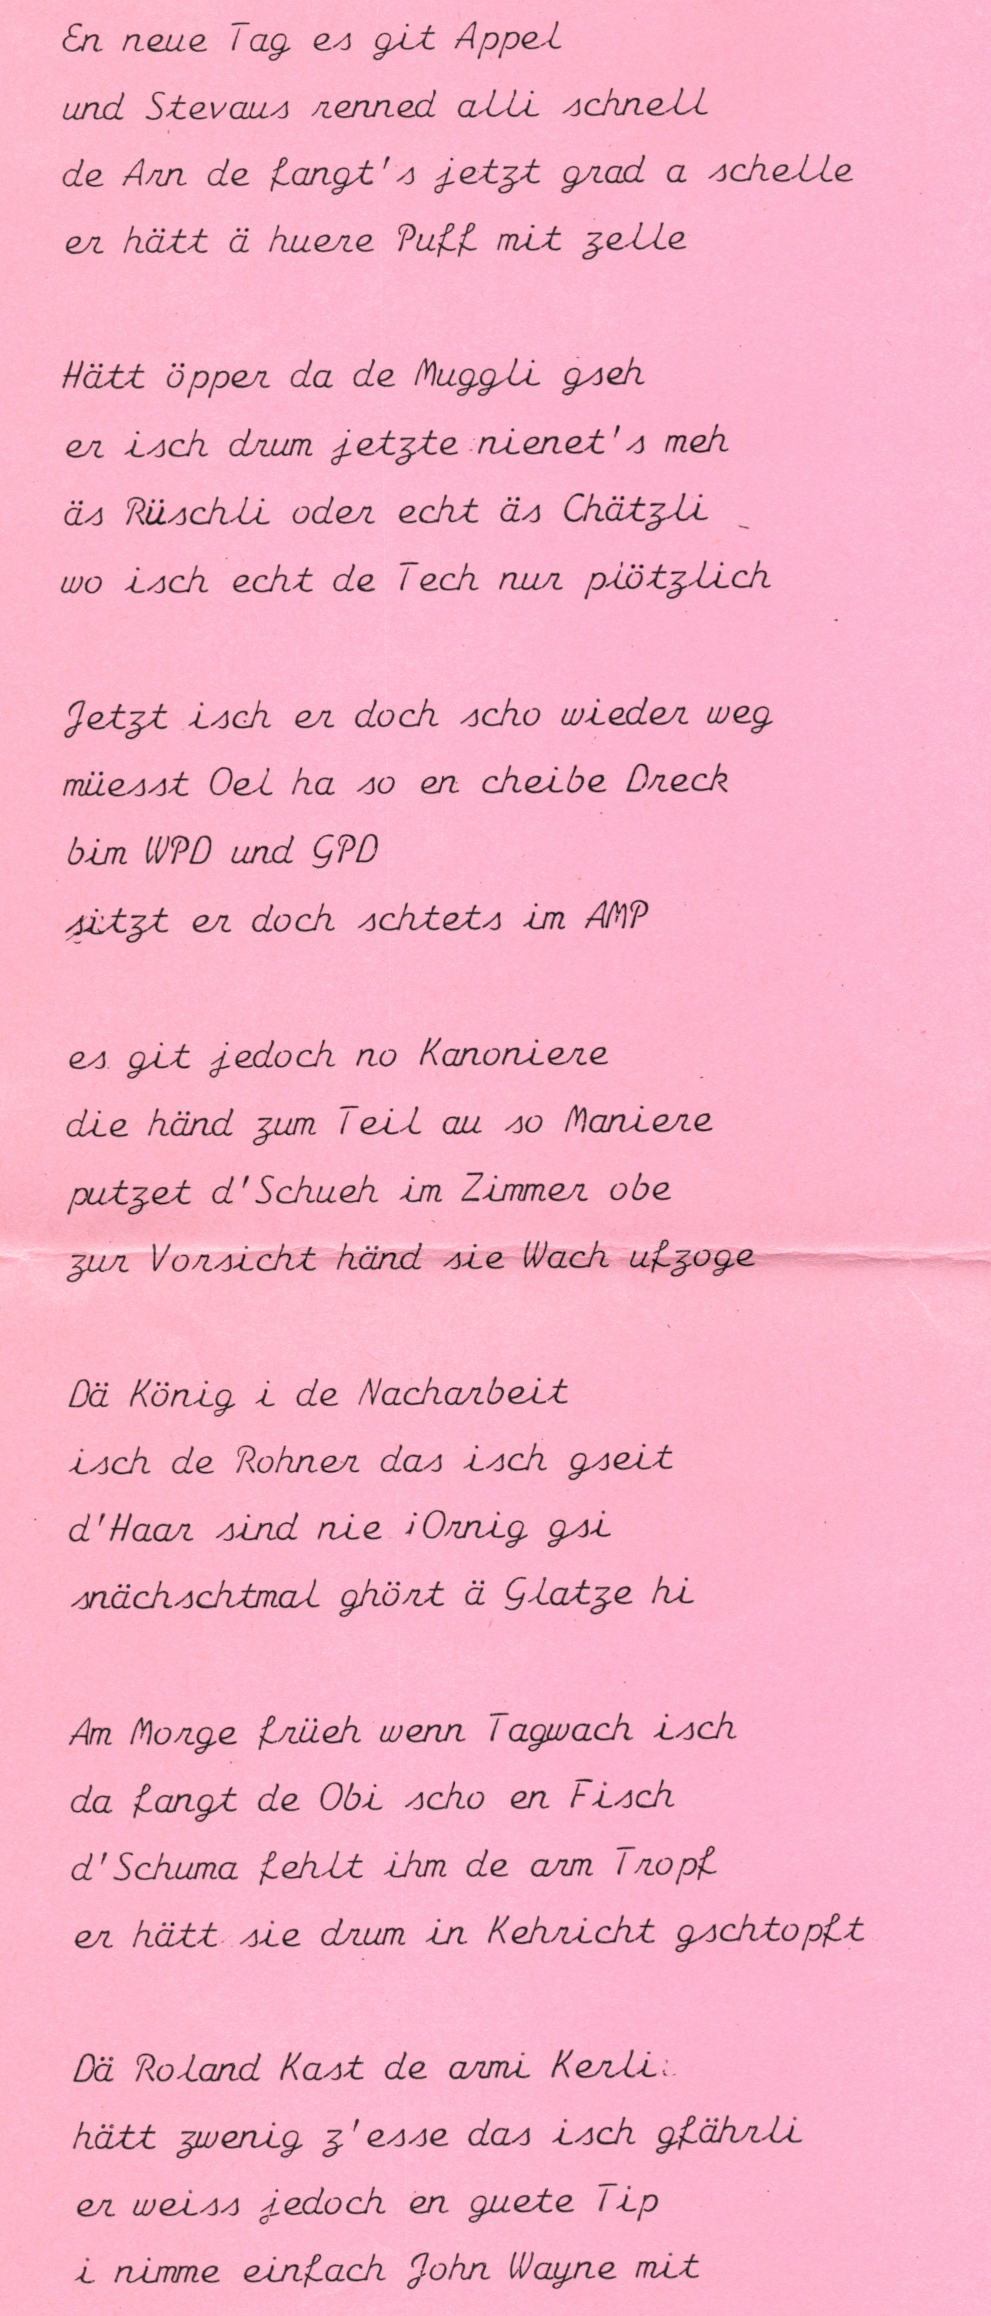 En neue Tag es git Appel
und Stevaus renned alli schnell
de Arn de fangt's jetzt grad a schelle
er hätt ä huere Puff mit zelle

Hätt öpper da de Muggli gseh
er isch drum jetzte nienet's meh
äs Rüschli oder echt äs Chätzli
wo isch echt de Tech nur plötzlich

Jetzt isch er doch scho wieder weg
müesst Oel ha so en cheibe Dreck
bim WPD und GPD
sitzt er doch schtets im AMP

es git jedoch no Kanoniere
die händ zum Teil au so Maniere
putzet d'Schueh im Zimmer obe
zur Vorsicht händ sie Wach ufzoge

Dä König i de Nacharbeit
isch de Rohner das isch gseit
d'Haar sind nie iOrnig gsi
snächschtmal ghört ä Glatze hi

Am Morge früeh wenn Tagwach isch
da fangt de Obi scho en Fisch
d'Schuma fehlt ihm de arm Tropf
er hätt sie drum in Kehricht gschtopft

Dä Roland Kast de armi Kerli
hätt zwenig z'esse das isch gfährli
er weiss jedoch en guete Tip
i nimme einfach John Wayne mit